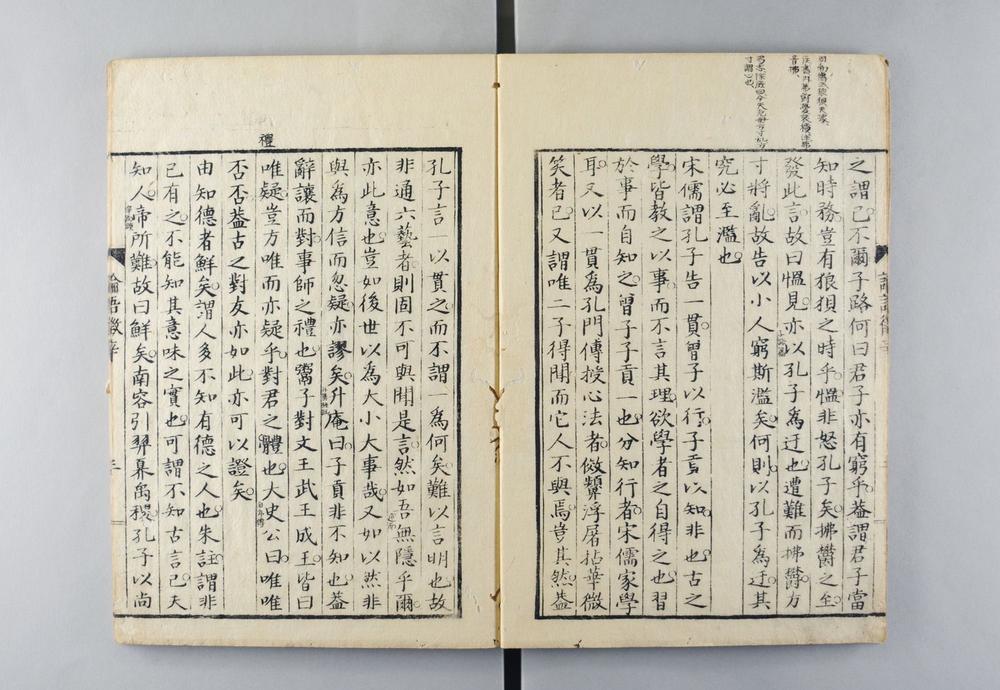 之謂已不爾子路何曰君子亦有窮乎葢謂君子當
知時務豈有狼狽之時乎慍非怒孔子矣拂鬱之至
發此言故曰慍見亦以孔子爲迂也遭難而拂鬱方
寸將亂故告以小人窮斯濫矣何則以孔子爲迂其
究必至濫也
宋儒謂孔子告一貫曾子以行子貢以知非也古之
學皆教之以事而不言其理欲學者之自得之也習
於事而自知之曾子子貢一也分知行者宋儒家學
耳又以一貫爲孔門傳授心法者倣顰浮屠拈華微
笑者已又謂唯二子得聞而它人不與焉豈其然葢
論語徵辛
三
禮
孔子言一以貫之而不謂一爲何矣難以言明也故
非通六藝者則固不可與聞是言然如吾無隱乎爾
亦此意也豈如後世以為大小大事哉又如以然非
與爲方信而忽疑亦謬矣升庵曰子貢非不知也葢
辭讓而對事師之禮也鬻子對文王武王成王皆曰
唯疑豈方唯而亦疑乎對君之體也大史公曰唯唯
否否葢古之對友亦如此亦可以證矣
由知德者鮮矣謂人多不知有德之人也朱註謂非
己有之不能知其意味之實也可謂不知古言已夫
知人帝所難故曰鮮矣南容引羿奡禹稷孔子以尚
論語徵辛
三